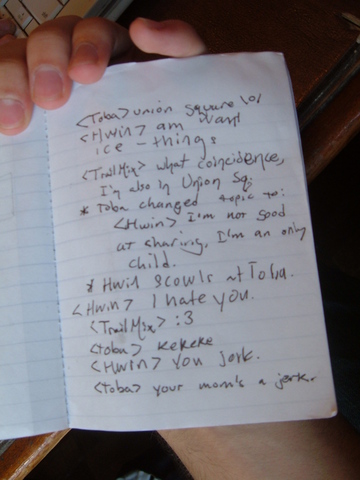 <Toba> union square lol
<Hwin> am want
ice-things
<TrailMix> what coincidence,
I'm also in Union Sq.
* Toba changed topic to:
<Hwin> I'm not good
at sharing, I'm an only
child.
* Hwin scowls at Toba.
<Hwin> I hate you.
<TrailMix> :3
<toba> kekeke
<Hwin> You jerk.
<toba> your mom's a jerk.